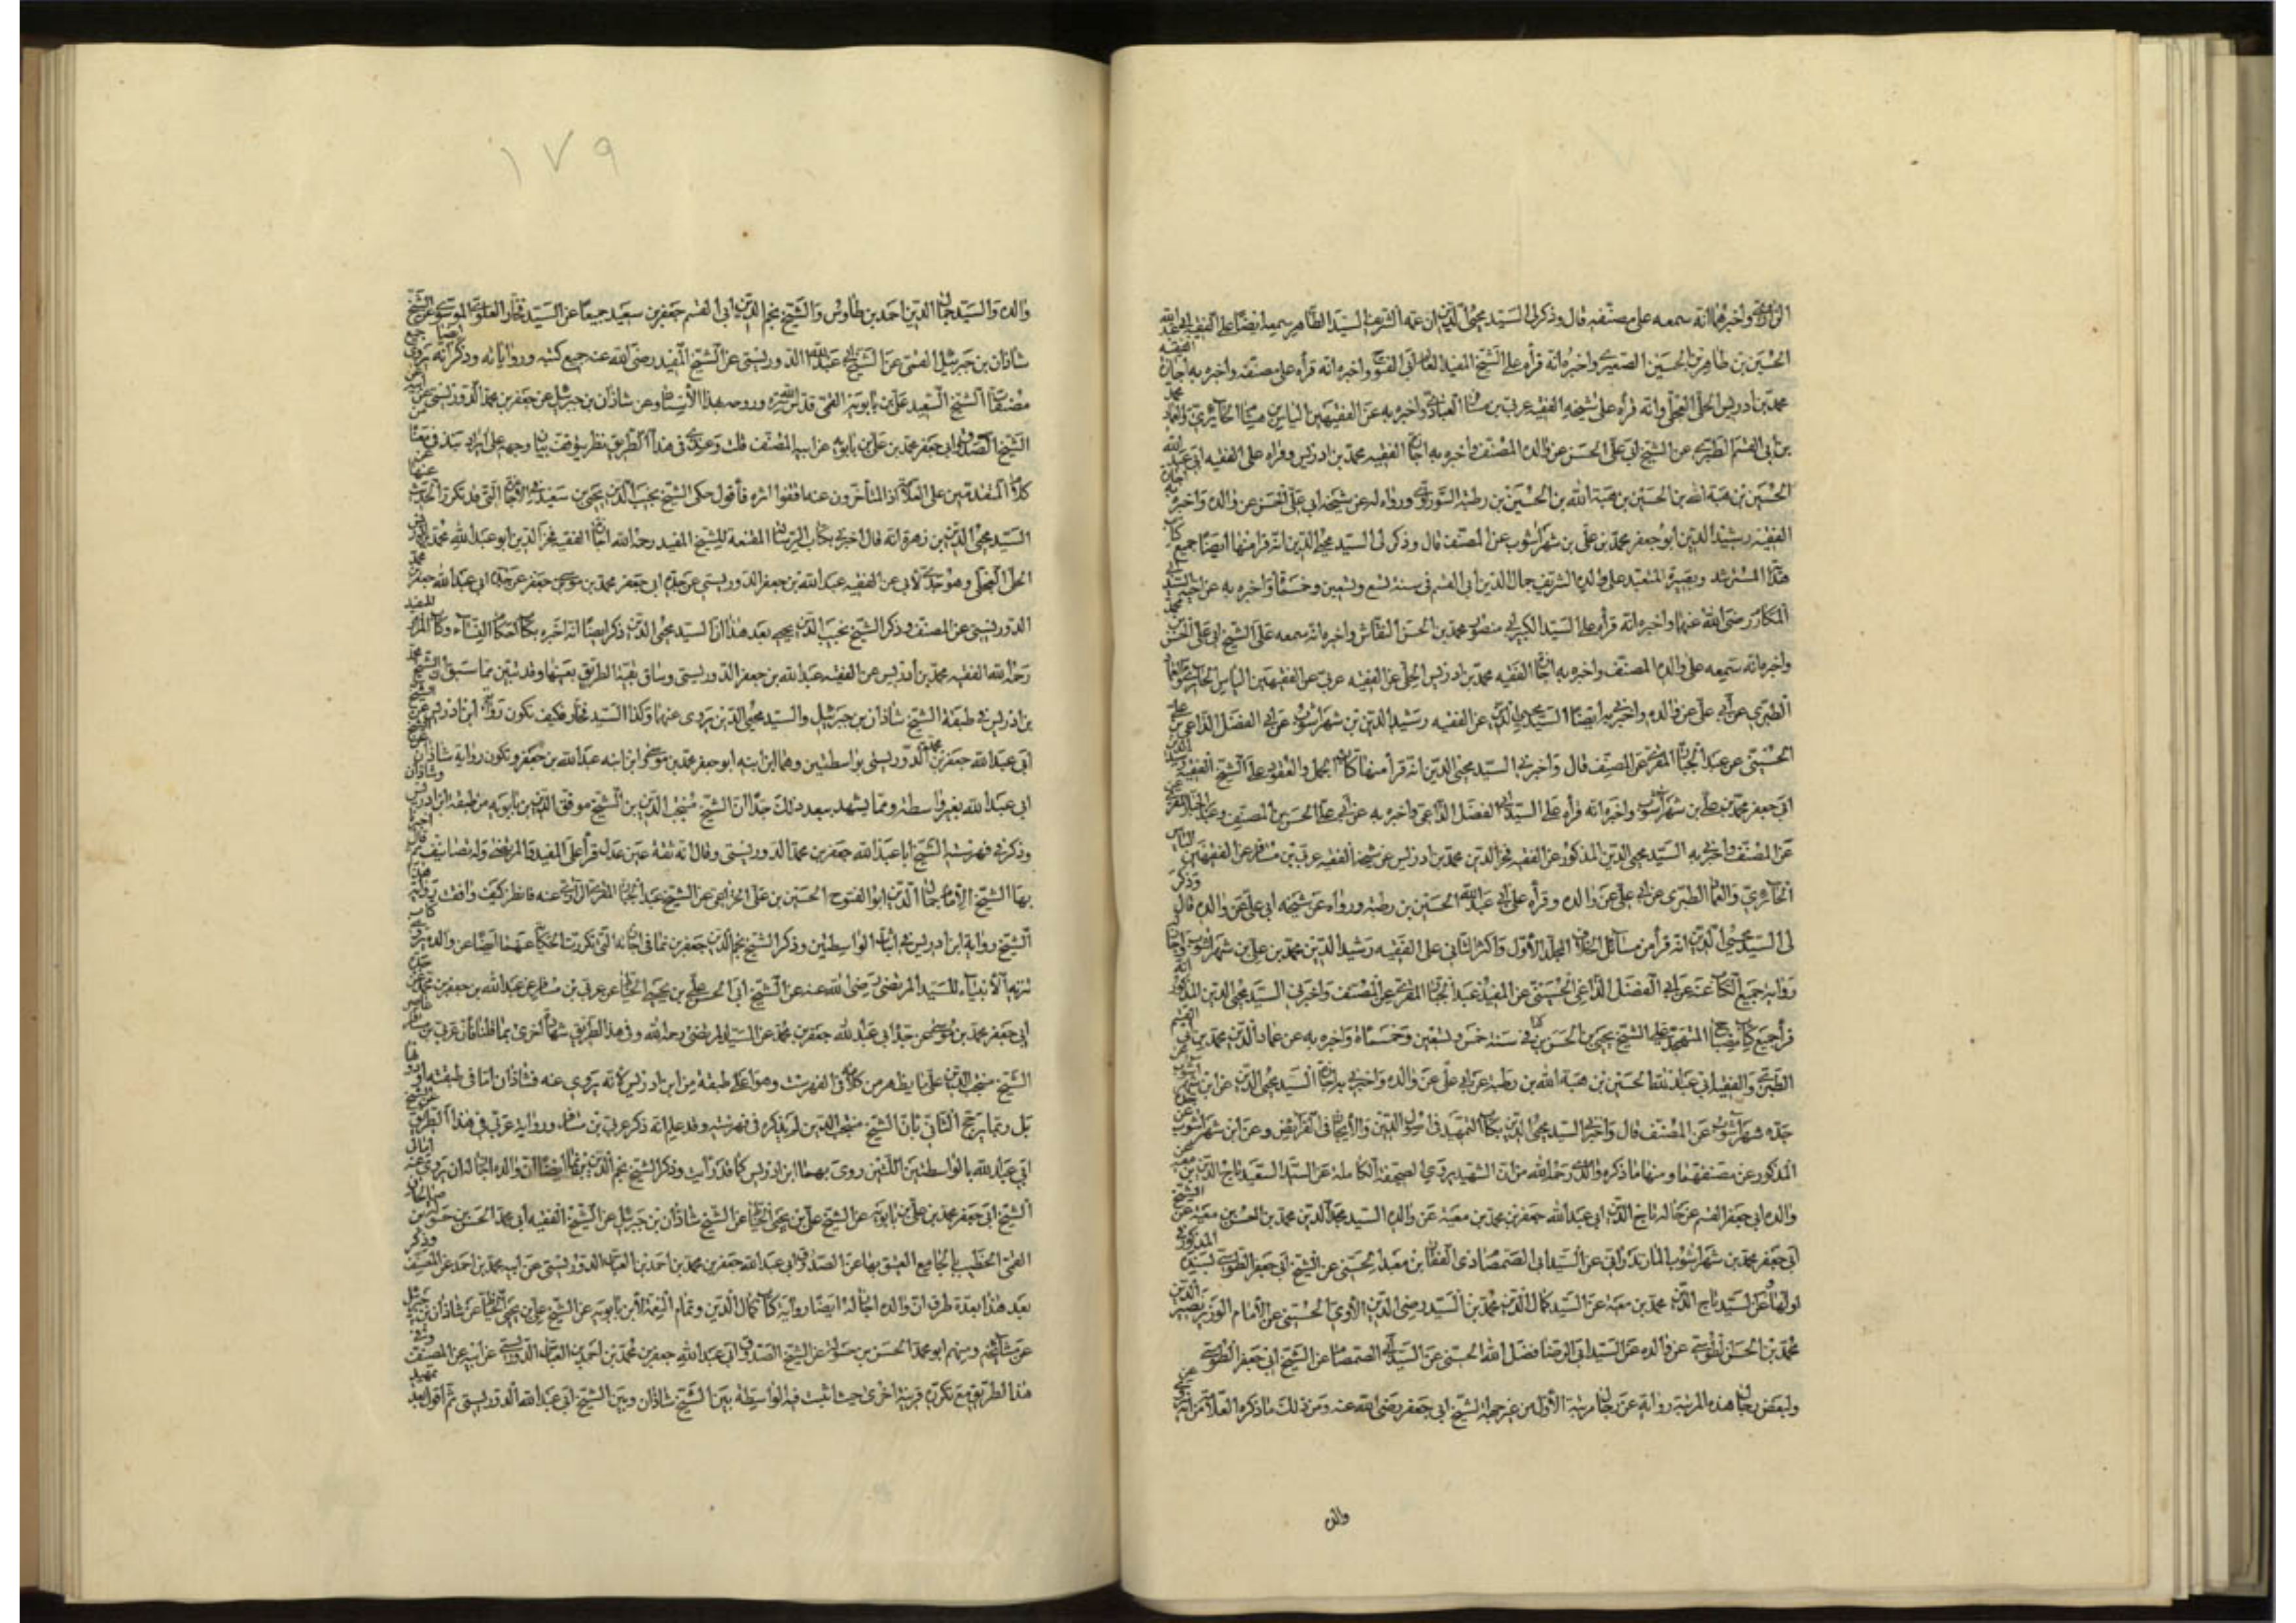 الراوندي واخبرهما انه سمعه على مصنفه قال وذكر لى السيد محيى الدين ان عمه الشريف السيد الطاهر سمعه ايضا على الفقيه ابى عبد الله
الحسين بن طاهر بن الحسين واخبره انه قرأه على الشيخ المفيد واخبره انه قرأه على مصنفه واخبره به اجازة الفقيه
محمد بن ادريس الحلى العجلى وانه قرأه على شيخه الفقيه عربى بن مسافر العبادى واخبره به عن الفقيهين الياس بن الحائرى والعماد محمد
بن ابى القسم الطبرى عن الشيخ ابى على الحسن عن والده المصنف واخبره به اجازة الفقيه محمد بن ادريس وقراه على الفقيه ابى عبد الله
الحسين بن هبة الله بن الحسين بن هبة الله بن الحسين بن رطبة السوراوى ورواه له عن شيخه ابى على الحسن عن والده واخبره به اجازة
الفقيه رشيد الدين ابو جعفر محمد بن على بن شهراشوب عن المصنف قال وذكر لى السيد محيى الدين انه قرا منها ايضا جميع كتاب
هداية المسترشد وبصيرة المتعبد على والده الشريف جمال الدين ابى القسم فى سنة تسع وتسعين وخمسمائة واخبره به عن اخيه السيد
ابى المكارم رضى الله عنهما واخبره انه قرأه على السيد الكبير ابى منصور محمد بن الحسن النقاش واخبره انه سمعه على الشيخ ابى على الحسن بن محمد
واخبره انه سمعه على والده المصنف واخبره به اجازة الفقيه محمد بن ادريس الحلى عن الفقيه عربى عن الفقيهين الياس الحائرى والعماد
الطبرى عن ابى على عن والده واخبرنى بها ايضا السيد محيى الدين عن الفقيه رشيد الدين بن شهراشوب عن ابى الفضل الداعى بن على
الحسينى عن عبد الجبار المقرى عن المصنف قال واخبرنى السيد محيى الدين انه قرأ منها كتاب الجمل والعقود على الشيخ الفقيه رشيد الدين
ابى جعفر محمد بن على بن شهراشوب واخبره انه قرأه على السيد ابى الفضل الداعى واخبره به عن ابى على الحسن بن المصنف وعبد الجبار المقرى
عن المصنف واخبره به السيد محيى الدين المذكور عن الفقيه فخر الدين محمد بن ادريس عن شيخه الفقيه عربى بن مسافر عن الفقيهين الياس
الحائرى والعماد الطبرى عن ابى على عن والده وقرأه على ابى عبد الله الحسين بن رطبة ورواه عن شيخه ابى على عن والده قال وذكر
لى السيد محيى الدين انه قرأ من مسائل الخلاف المجلد الأول واكثر الثانى على الفقيه رشيد الدين محمد بن على بن شهراشوب واجاز له
رواية جميع الكتاب عنه عن ابى الفضل الداعى الحسينى عن المفيد عبد الجبار المقرى عن المصنف واخبرنى السيد محيى الدين المذكور انه
قرأ جميع كتاب مصباح المتهجد على الشيخ يحيى بن الحسن بن فى سنة خمس وتسعين وخمسمائة واخبره به عن عماد الدين محمد بن ابى القسم
الطبرى والفقيه ابى عبد الله الحسين بن هبة الله بن رطبة عن ابى على عن والده واخبرنى به اجازة السيد محيى الدين عن ابن شهراشوب عن
جده شهراشوب عن المصنف قال واخبرنى السيد محيى الدين بكتاب التمهيد فى اصول الدين والايجاز فى الفرائض وعن ابن شهراشوب عن جده
المذكور عن مصنفهما ومنها ما ذكره والدى رحمه الله من ان الشهيد يروى الصحيفة الكاملة عن السيد السعيد تاج الدين بن معية عن
والده ابى جعفر القسم عن خاله تاج الدين ابى عبد الله جعفر بن محمد بن معية عن والده السيد مجد الدين محمد بن الحسن بن معية عن الشيخ
ابى جعفر محمد بن شهراشوب المازندرانى عن السيد ابى الصمصام ذى الفقار بن معبد الحسنى عن الشيخ ابى جعفر الطوسى بسنده المذكور
فى اولها وعن السيد تاج الدين محمد بن معية عن السيد كمال الدين محمد بن السيد رضى الدين الآوى الحسينى عن الامام الوزير نصير الدين
محمد بن الحسن الطوسى عن والده عن السيد ابى الرضا فضل الله الحسنى عن السيد ابى الصمصام عن الشيخ ابى جعفر الطوسى
ولبعض رجال هذه المرتبة رواية عن رجال مرتبة الأول من غير جهة الشيخ ابى جعفر رضى الله عنه ومن ذلك ما ذكره العلامة من انه يروى عن
والده
١٧٩
والده والسيد جمال الدين احمد بن طاوس والشيخ نجم الدين ابى القسم جعفر بن سعيد جميعا عن السيد فخار العلوى الموسوى عن الشيخ
شاذان بن جبرئيل القمى عن الشيخ ابى عبد الله الدوريستى عن الشيخ المفيد رضى الله عنه جميع كتبه ورواياته وذكر انه يروى ايضا جميع
مصنفات الشيخ السعيد على بن بابويه القمى قدس الله سره وروحه بهذا الأسناد وعن شاذان بن جبرئيل عن جعفر بن محمد الدوريستى عن ابيه عن
الشيخ الصدوق ابى جعفر محمد بن على بن بابويه عن ابيه المصنف قلت وعندى فى هذا الطريق نظر يتوقف بيان وجهه على ايراد نبذ فى معنا
كلام المتقدمين على العلامة اذ المتأخرون عنه اقتفوا اثره فأقول حكى الشيخ نجيب الدين يحيى بن سعيد فى الأجازة التى قد تكرر الحديث عنها عن
السيد محيى الدين بن زهرة انه قال اخبرنى بكتاب الرسالة المقنعة للشيخ المفيد رحمه الله اجازة الفقيه فخر الدين ابو عبد الله محمد بن ادريس
الحلى العجلى وهو جدى لأبى عن الفقيه عبد الله بن جعفر الدوريستى عن جده ابى جعفر محمد بن موسى بن جعفر عن جده ابى عبد الله جعفر بن محمد
الدوريستى عن المصنف وذكر الشيخ نجيب الدين يحيى بعد هذا ان السيد محيى الدين ذكر ايضا انه اخبره بكتاب احكام النساء وكتاب المزار للمفيد
رحمه الله الفقيه محمد بن ادريس عن الفقيه عبد الله بن جعفر الدوريستى وساق بقية الطريق بعينها وقد تبين مما سبق ان الشيخ محمد
بن ادريس فى طبقة الشيخ شاذان بن جبرئيل والسيد محيى الدين يروى عنهما وكذا السيد فخار فكيف تكون رواية ابن ادريس عن الشيخ
ابى عبد الله جعفر بن محمد الدوريستى بواسطتين وهما ابن ابنه ابو جعفر محمد بن موسى وابن ابنه عبد الله بن جعفر وتكون رواية شاذان عن الشيخ
ابى عبد الله بغير واسطة ومما يشهد ببعد ذلك جدا ان الشيخ منتجب الدين بن الشيخ موفق الدين بن بابويه من طبقة ابن ادريس وشاذان
وذكر فى فهرسته الشيخ ابا عبد الله جعفر بن محمد الدوريستى وقال انه ثقة عين عدل قرأ على المفيد والمرتضى وله تصانيف ثم قال اخبرنا
بها الشيخ الامام جمال الدين ابو الفتوح الحسين بن على الخزاعى عن الشيخ عبد الجبار المقرى الرازى عنه فانظر كيف وافقت رواية هذا
الشيخ رواية ابن ادريس فى اثبات الواسطتين وذكر الشيخ نجم الدين جعفر بن نما فى اجازته التى تكررت الحكاية عنها ايضا عن والده يروى كتاب
تنزيه الأنبياء للسيد المرتضى رضى الله عنه عن الشيخ ابى الحسن على بن يحيى الخياط عن عربى بن مسافر عن عبد الله بن جعفر بن محمد عن جده
ابى جعفر محمد بن موسى عن جده ابى عبد الله جعفر بن محمد عن السيد المرتضى رحمه الله وفى هذا الطريق شهادة اخرى بما قلناه فان عربى بن مسافر
الشيخ منتجب الدين على ما يظهر من كلامه فى الفهرست وهو اعلى طبقة من ابن ادريس لانه يروى عنه فشاذان اما فى طبقته او دونها
بل ربما يرجح الثانى بان الشيخ منتجب الدين لم يذكره فى فهرسته وقد علم انه ذكر عربى بن مسافر ورواية عربى فى هذا الطريق عن الشيخ
ابى عبد الله بالواسطتين اللتين روى بهما ابن ادريس كما قد رأيت وذكر الشيخ نجم الدين بن نما ايضا ان والده اجاز له ان يروى عنه امالى
الشيخ ابى جعفر محمد بن على بن بابويه عن الشيخ على بن يحيى الخياط عن الشيخ شاذان بن جبرئيل عن الشيخ الفقيه ابى محمد الحسن بن حسولة بن صالحان
القمى الخطيب بالجامع العتيق بها عن الصدوق ابى عبد الله جعفر بن محمد بن احمد بن العباس الدوريستى عن ابيه محمد بن احمد عن المصنف وذكر
بعد هذا بعدة طرق ان والده اجاز له ايضا رواية كتاب كمال الدين وتمام النعمة لابن بابويه عن الشيخ على بن يحيى الخياط عن شاذان بن جبرئيل
عن مشايخه ومنهم ابو محمد الحسن بن حسولة عن الشيخ الصدوق ابى عبد الله جعفر بن محمد بن احمد بن العباس الدوريستى عن ابيه عن المصنف وفى
هذا الطريق مع تكرره قرينة اخرى حيث اثبت فيه الواسطة بين الشيخ شاذان وبين الشيخ ابى عبد الله الدوريستى ثم اقول بعد تمهيد